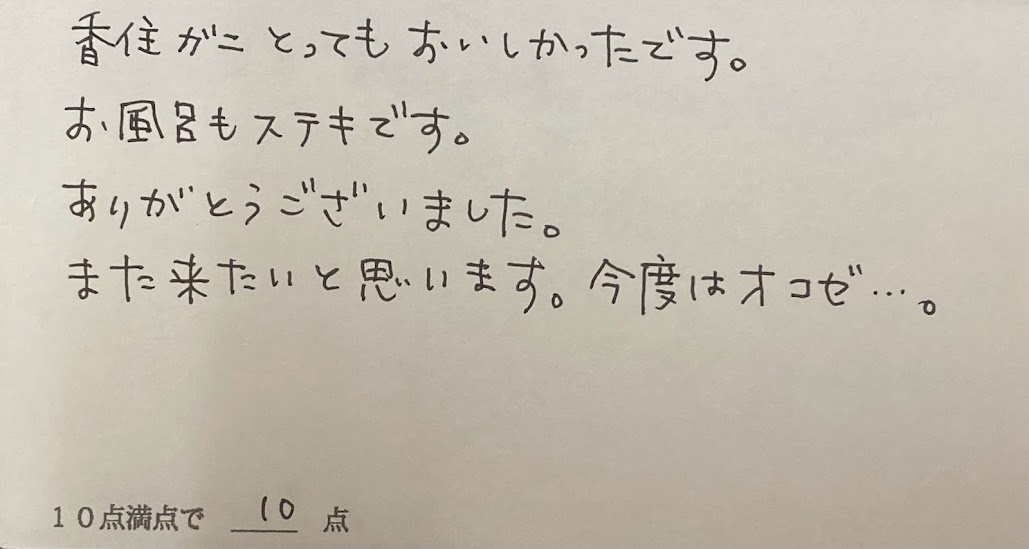 香住がニとってもおいしかったです。
お風呂もステキです。
ありがとうございました。
また来たいと思います。今度はオコゼ…。
10点満点で 10 点